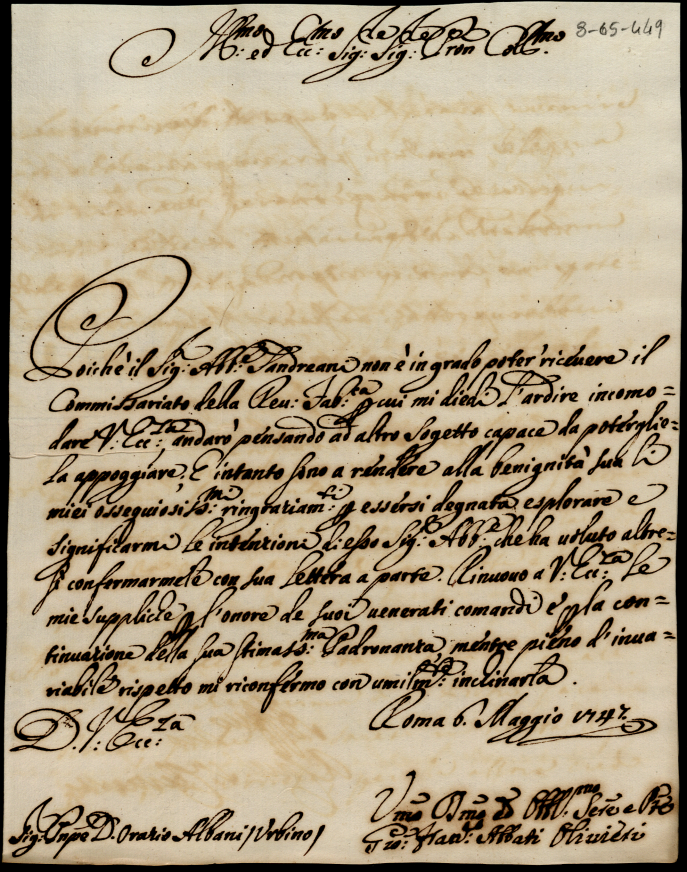 8-65-449
Ill:mo ed Ecc:mo Sig:re Sig:re Pron Col:mo
Poichè il Sig: Abb:e Tandreani non è in grado poter ricevere il
Commissariato della Reu: Fab:ca p cui mi diedi l'ardire incomo=
dare V: Ecc:za andarò pensando ad altro sogetto capace da poterglie=
la appoggiare. E intanto sono a rendere alla benignità sua li
miei osseguiosis:mi ringraziam:ti p essersi degnata esplorare e
significarmi le intenzioni di esso Sig:e Abb:e che ha voluto altre=
sì confermarmele con sua lettera a parte. Rinuovo a V: Ecc:za le
mie suppliche p l'onore de suoi venerati comandi e p la con=
tinuazione della sua stimass:ma Padronanza, mentre pieno d'inva=
riabile rispetto mi riconfermo con umilm:te inclinarla.
D. V: Ecc:za
Roma 6. Maggio 1747.
Vmo Dmo ed Obbl:mo Sere e Pre
Sig: Pnpe D. Orazio Albani / Urbino /
Gio: Fran: Abbati Olivieri